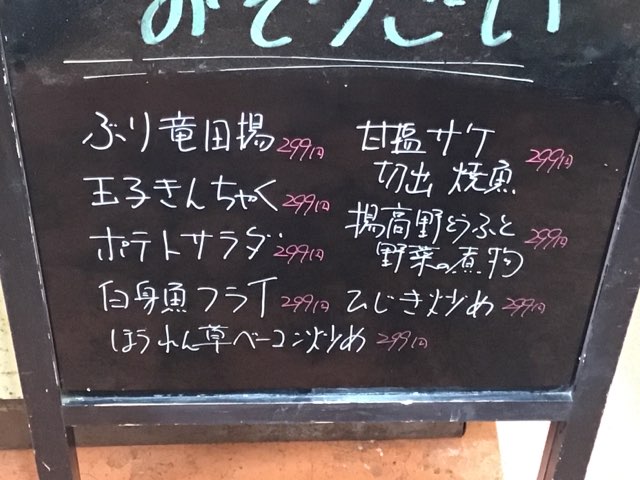 おそうざい
ぶり竜田揚 299円
玉子きんちゃく 299円
ポテトサラダ 299円
白身魚フライ 299円
ほうれん草ベーコン炒め 299円
甘塩サケ
切出 焼魚 299円
揚高野どうふと
野菜の煮物 299円
ひじき炒め 299円